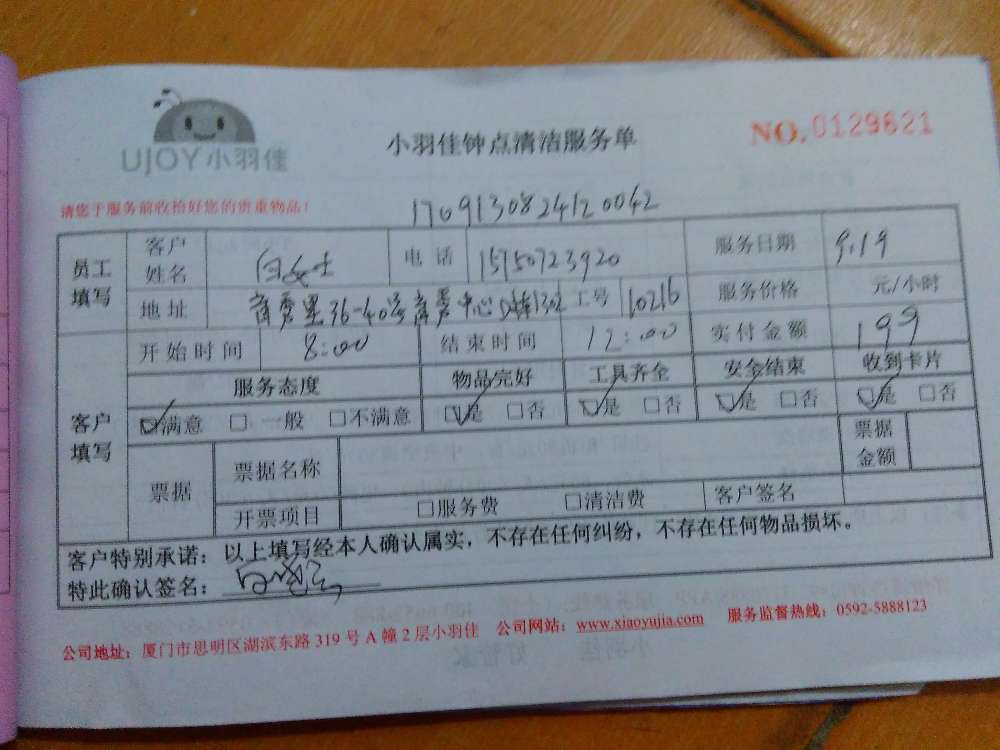 UJOY小羽佳
小羽佳钟点清洁服务单
NO.0129621
请您于服务前收拾好您的贵重物品!
1709130824120042
员工填写 客户姓名 白女士 电话 15750723920 服务日期 9.19
地址 36-40号 中心 工号 10216 服务价格 元/小时
客户填写 开始时间 8:00 结束时间 12:00 实付金额 199
服务态度 物品完好 工具齐全 安全结束 收到卡片
☑满意 □一般 □不满意 ☑是 □否 ☑是 □否 ☑是 □否 ☑是 □否
票据 票据名称 票据金额
开票项目 □服务费 □清洁费 客户签名
客户特别承诺:以上填写经本人确认属实,不存在任何纠纷,不存在任何物品损坏。
特此确认签名:
公司地址:厦门市思明区湖滨东路 319 号 A 幢 2 层小羽佳 公司网站:www.xiaoyujia.com 服务监督热线:0592-5888123